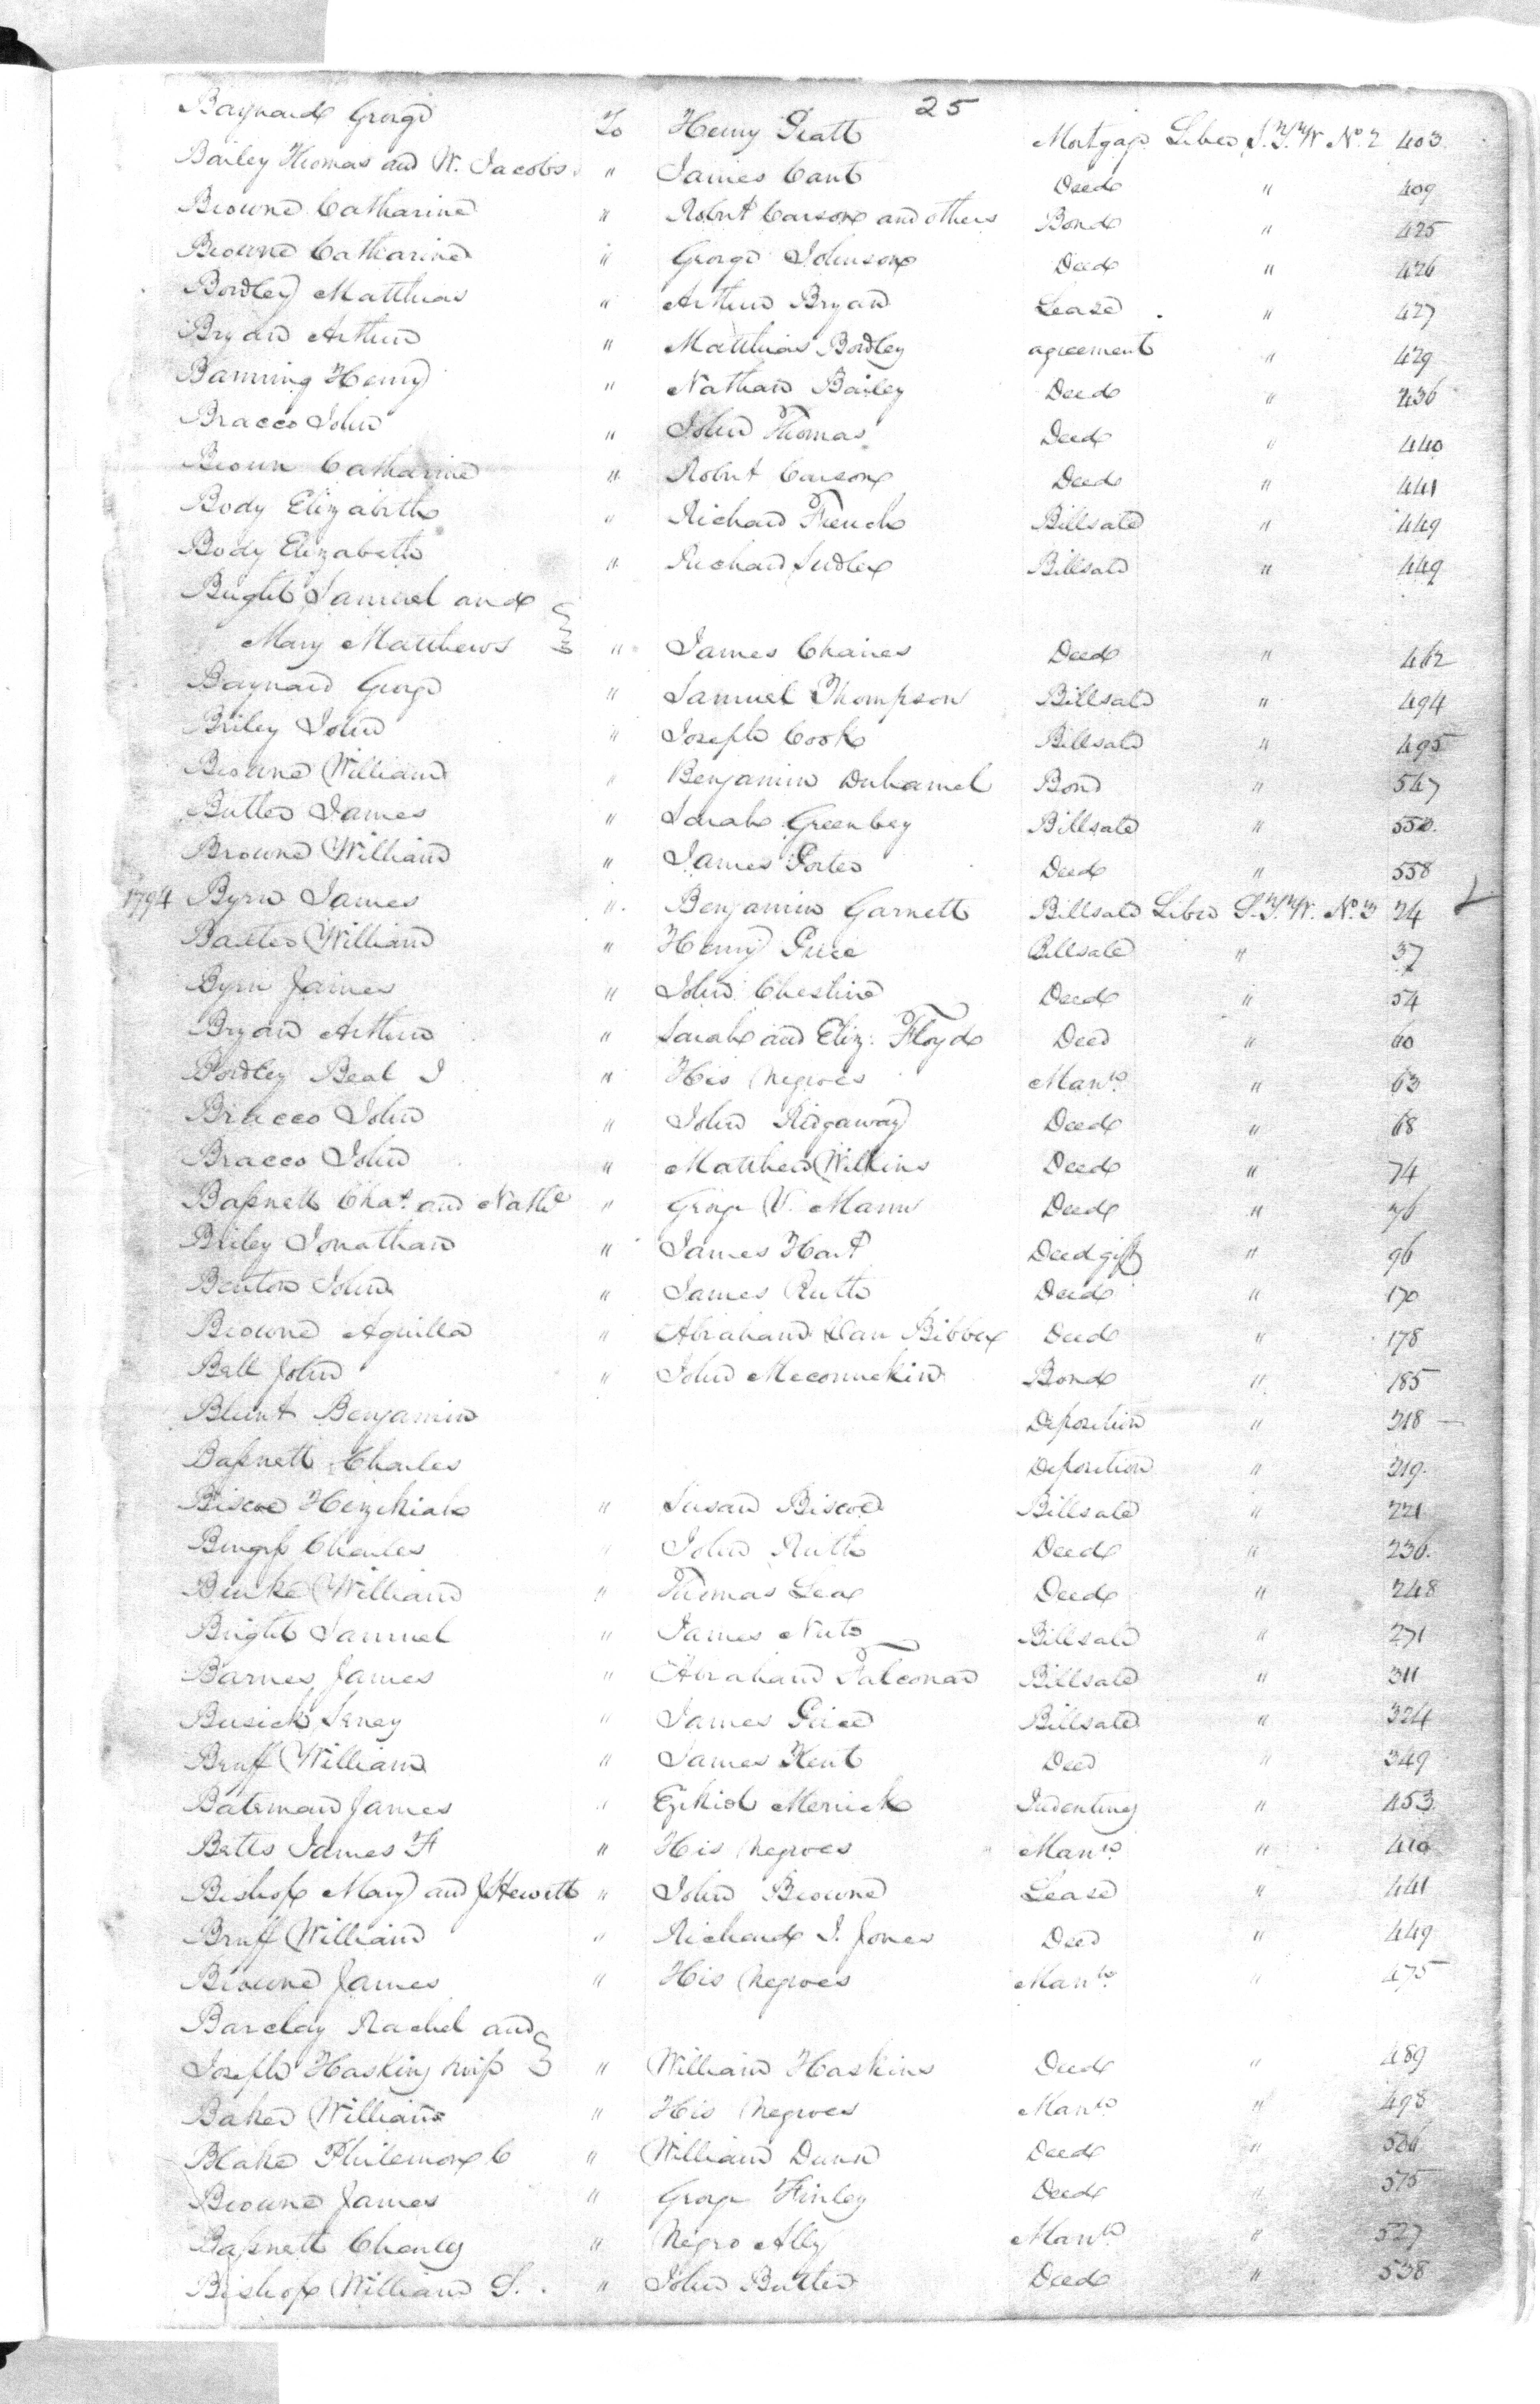 25
Baynard George To Henry Pratt Mortgage Liber S.T.W. No. 2 403
Bailey Thomas and W. Jacobs " James Cant Deed " 409
Browne Catharine " Robert Carson and others Bond " 425
Browne Catharine " George Johnson Deed " 426
Bordley Matthias " Arthur Bryan Lease " 427
Bryan Arthur " Matthias Bordley agreement " 429
Banning Henry " Nathan Bailey Deed " 436
Bracco John " John Thomas Deed " 440
Broun Catharine " Robert Carson Deed " 441
Body Elizabeth " Richard French Billsale " 449
Body Elizabeth " Richard Billsale " 449
Bright Samuel and
Mary Matthews " James Chaires Deed " 462
Baynard George " Samuel Thompson Billsale " 494
Briley John " Joseph Cook Billsale " 495
Browne William " Benjamin Duhamel Bond " 547
Butler James " Sarah Greenbey Billsale "
Browne William " James Porter Deed " 558
1794 Byrn James " Benjamin Garnett Billsale Liber S.T.W. No. 3 24
Baxter William " Henry Price Billsale " 37
Byrn James " John Cheshire Deed " 54
Bryan Arthur " Sarah and Eliz: Floyd Deed " 60
Bordley Beal I " His Negroes Mann. " 63
Bracco John " John Ridgaway Deed " 68
Bracco John " Matthew Wilkins Deed " 74
Bassnett Chas. and Nathl " George V. Mann Deed " 76
Briley Jonathan " James Hart Deed gift " 96
Benton John " James Ruth Deed " 170
Browne Aquilla " Abraham Van Bibber Deed " 178
Bell John " John Meconnekin Bond " 185
Blunt Benjamin Deposition " 218
Bassnett Charles Deposition " 219
Biscoe Hezekiah " Susan Biscoe Billsale " 221
Burgess Charles " John Ruth Deed " 236
Burke William " Thomas Lea Deed " 248
Bright Samuel " James Nuts Billsale " 271
Barnes James " Abraham Falconar Billsale " 311
Busick Seney " James Price Billsale " 324
Bruff William " James Kent Deed " 349
Bateman James " Ezekiel Merrick Indenting " 453
Betts James H " His Negroes Mann. " 410
Bishop Mary and J Hewett " John Browne Lease " 441
Bruff William " Richard I. Jones Deed " 449
Browne James " His Negroes Mann. " 475
Barclay Rachel and
Joseph Haskins " William Haskins Deed " 489
Baker William " His Negroes Mann. " 498
Blake Philemon C " William Dunn Deed "
Browne James " George Finley Deed " 575
Bassnett Charles " Negro Ally Mann. " 527
Bishop William S. " John Butler Deed " 538